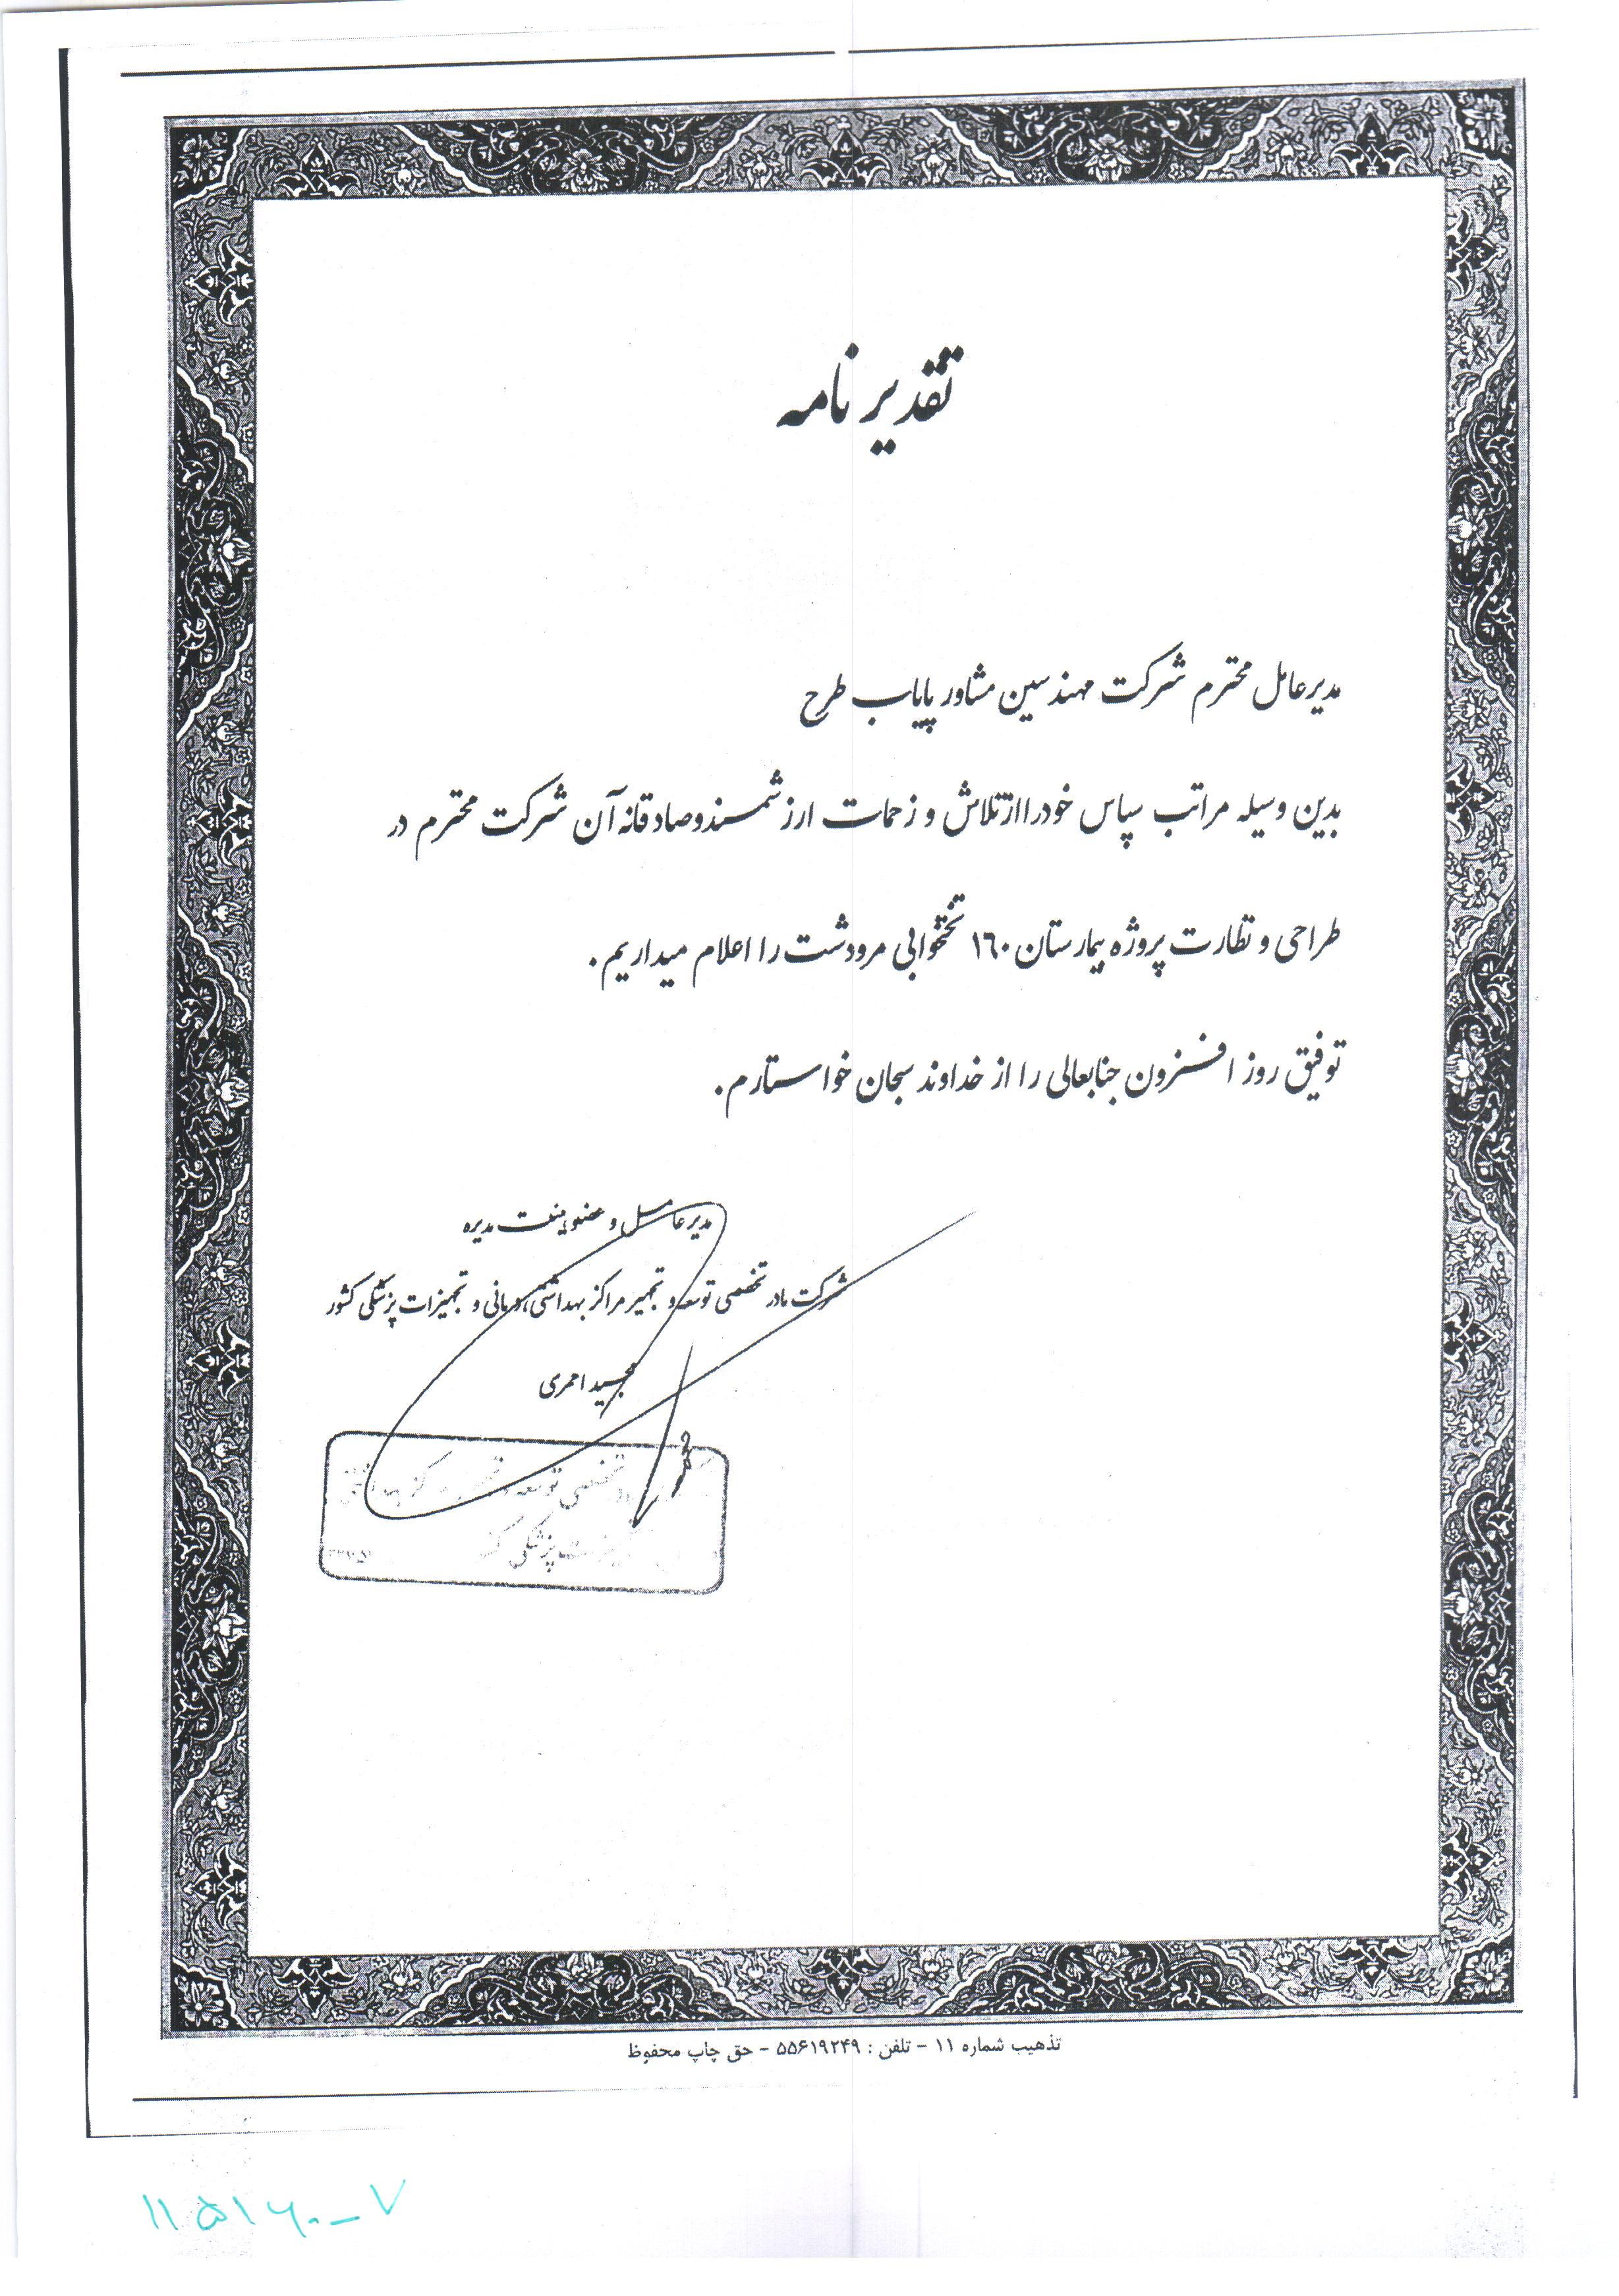 تقدیر نامه
مدیرعامل محترم شرکت مهندسین مشاور پایاب طرح
بدین وسیله مراتب سپاس خودرااز تلاش و زحمات ارزشمندوصادقانه آن شرکت محترم در
طراحی و نظارت پروژه بیمارستان ١٦٠ تختخوابی مرودشت را اعلام میداریم.
توفیق روز افزون جنابعالی را از خداوند سبحان خواستارم.
مدیرعامل و عضو هیئت مدیره
شرکت مادر تخصصی توسعه و تجهیز مراکز بهداشتی، درمانی و تجهیزات پزشکی کشور
احمری
تخصصی توسعه
پزشکی
تذهیب شماره ۱۱ - تلفن : ۵۵۶۱۹۲۴۹ - حق چاپ محفوظ
۱۱۵۱۶۰-۷